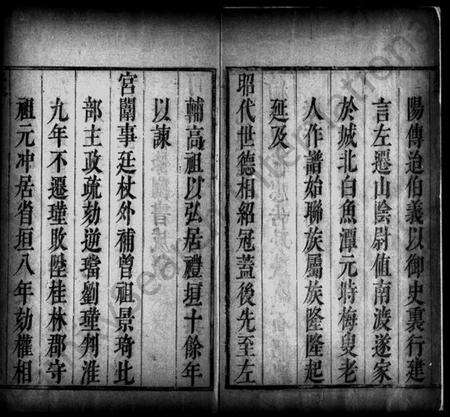 陽傳迨伯義以御史裏行建
言左遷山陰尉值南渡遂家
於城北白魚潭元時梅叟老
人作譜始聯族屬族隆隆起
延及
昭代世德相紹冠蓋後先至左
輔高祖以弘居禮垣十餘年
以諫
宮闈事廷杖外補曾祖景琦比
部主政疏劾逆璫劉瑾判淮
九年不遷瑾敗陞桂林郡守
祖元冲居省垣八年劾權相